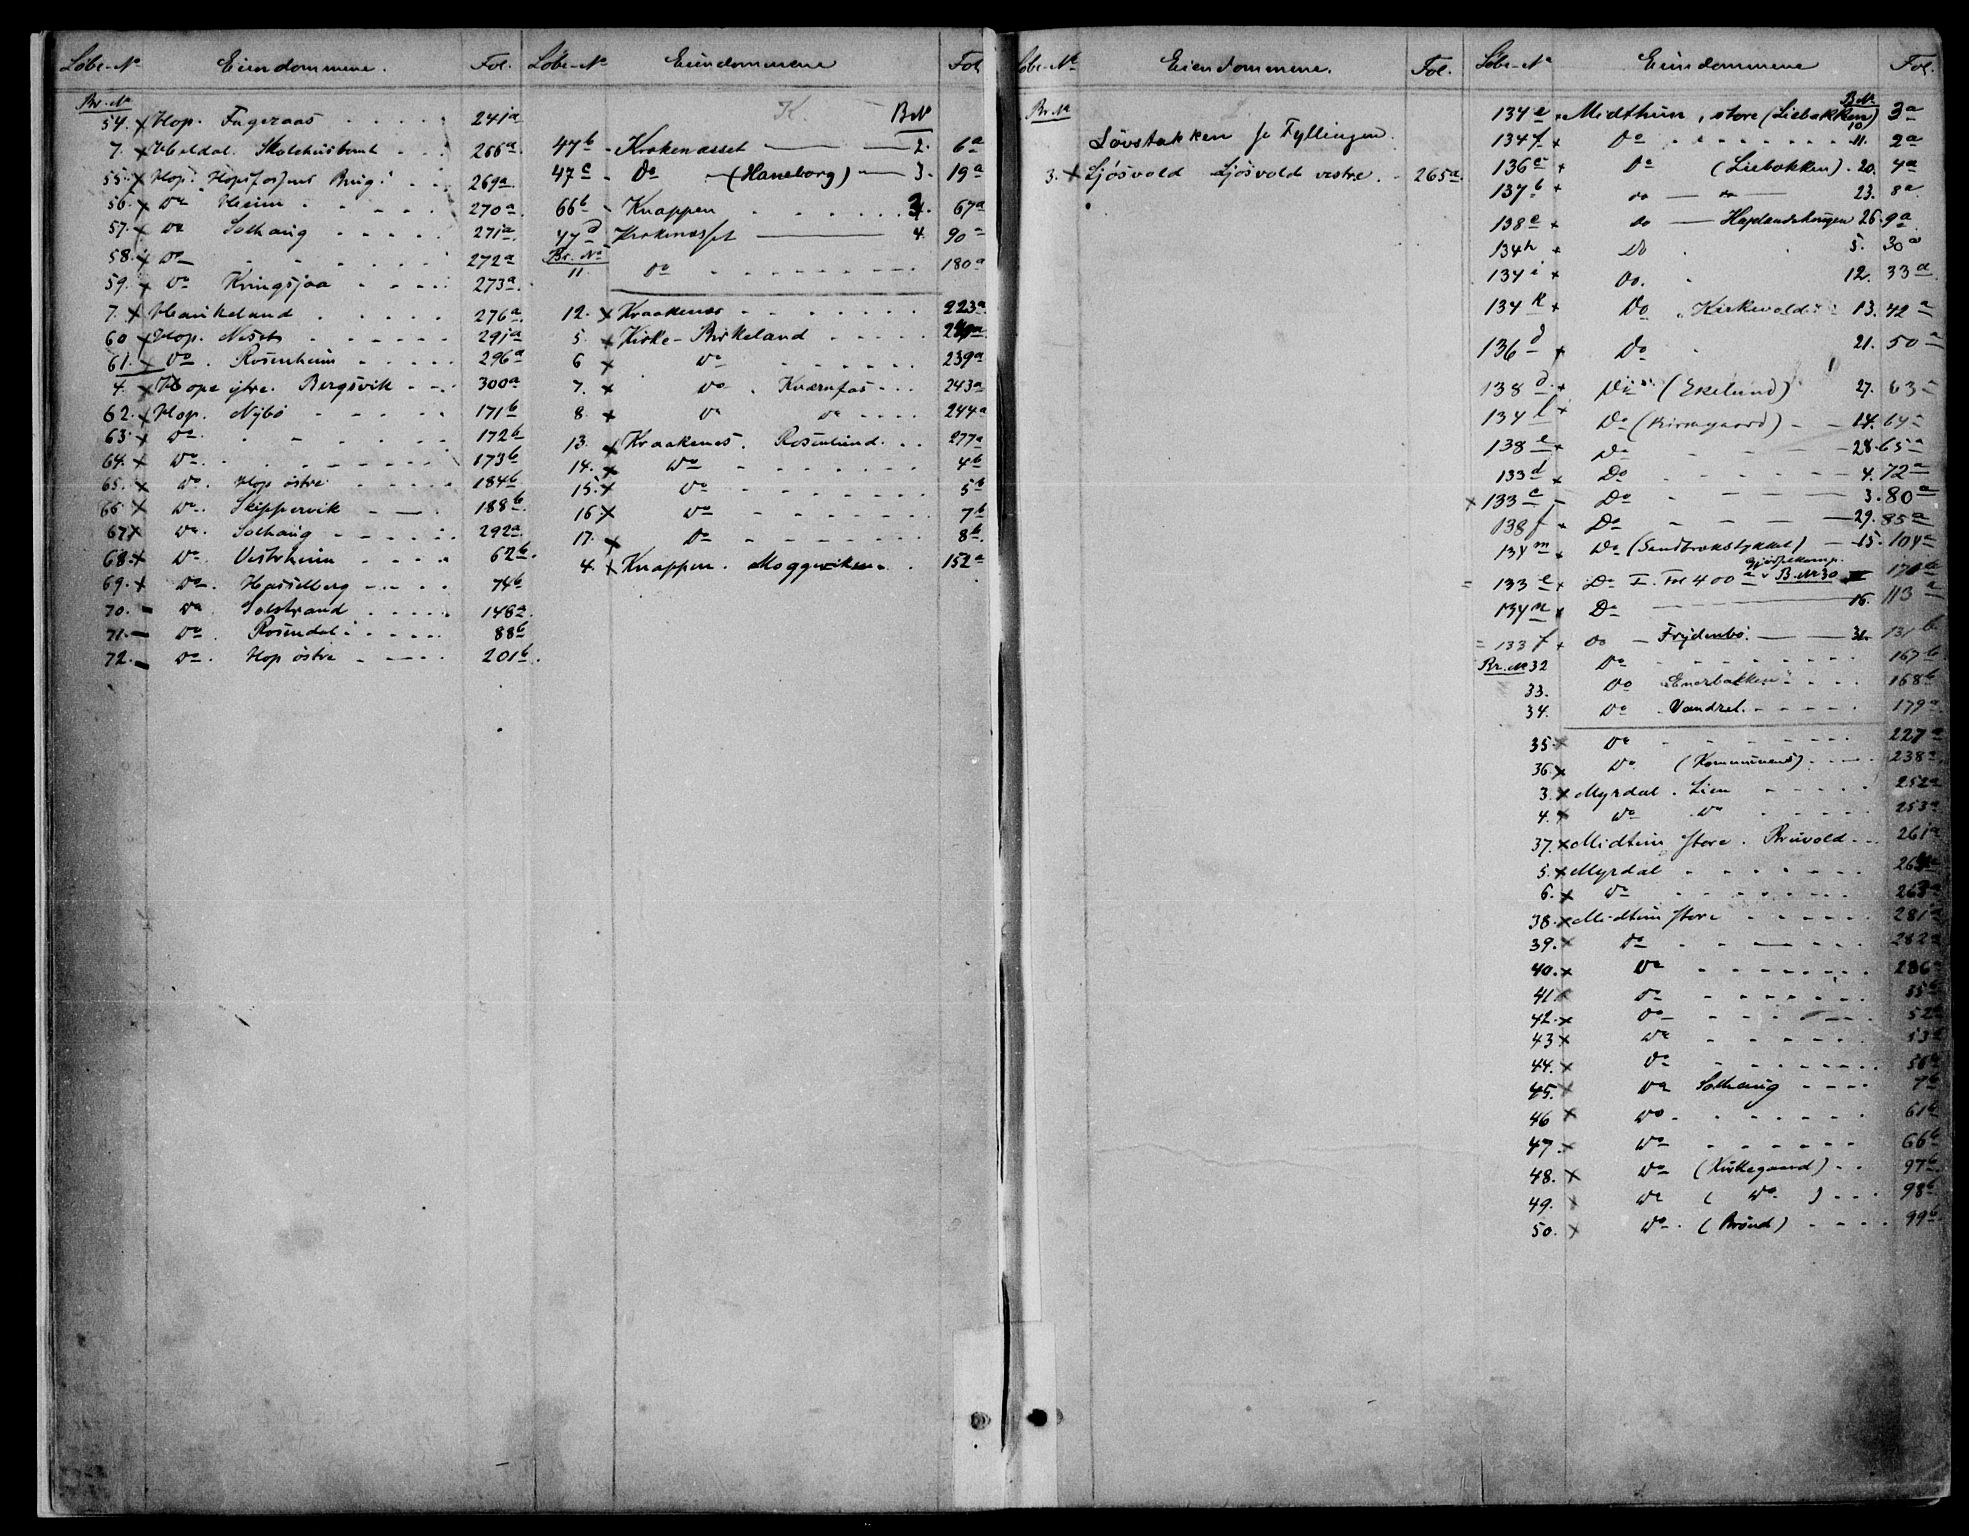 Löbe-No Eiendommene. Fol.
Br. No
54. x Hop. Fageraas 241a
7. x Heldal. Skolehustomt 266a
55. x Hop. "Hopsfossens Brug" 269a
56. x Do Heim 270a
57. x Do Solhaug 271a
58. x Do 272a
59. x Do Kringsjaa 273a
7. x Haukeland 276a
60 x Hop. Neset 291a
61. x Do. Rosenheim 296a
4. x Hope ytre. Bergsvik 300a
62. x Hop. Nybö 171b
63. x Do. 172b
64. x Do. 173b
65. x Do. Hop östre 184b
66. x Do. Skippervik 188b
67 x Do. Solhaug 292a
68. x Do. Vestrheim 62b
69. x Do. Hasselberg 74b
70. - Do. Solstrand 148a
71. - Do. Rosendal 88b
72. - Do. Hop östre 201b
Löbe-No Eiendommene Fol.
K. B No
47b - Krokenæsset 2. 6a
47c - Do (Haneborg) 3. 19a
66b - Knappen 3. 67a
47d Krokenæsset 4. 90a
Br. No
11. Do 180a
12. x Kraakenæs 223a
5. x Kirke-Birkeland
6 x Do 239a
7. x Do. Kværnfos 243a
8. x Do Do 244a
13. x Kraakenes. Rosenlund. 277a
14. x Do 4b
15. x Do 5b
16 x Do 7b
17. x Do 8b
4. x Knappen. Moggeviken. 152a
Löbe-No Eiendommene. Fol.
Br. No L.
Løvstakken se Fyllingen.
3. x Ljösvold Ljösvold vestre. 265a.
Löbe-No Eiendommene Fol.
B No.
134e x Midthun, store (Liebakken) 10 3a
134f x Do 11. 2a
136c x Do (Liebakken) 20. 4a
137b x Do 23. 8a
138c Do Haplandshaugen 26. 9a
134h x Do 5. 30a
134i x Do. 12. 33a
134k x Do "Kirkevold" 13. 42a
136d x Do 21. 50a
138d x Do (Ekelund) 27. 63a
134l x Do (Birmgaard) 14. 64a
138e x Do 28. 65a
133d x Do 4. 72a
x 133c - Do 3. 80a
138f x Do 29. 85a
134m x Do (Sandbrekstykket) 15. 104a
= 133e x Do I. Fol 400a v B.No 30
134n x Do 16. 113a
= 133f x Do - Frydenbö. 31. 131b
Br. No 32 Do 167b
33. Do "Enerbakken" 168b
34. Do Vandret. 179a
35 x Do 227a
36. x Do (Kommunens) 238a
3. x Myrdal. Lien 252a
4. x Do Do 253a
37. x Midtun store. Bruvold 261a
5. x Myrdal
6. x Do
38. x Midtun store 281a
39. x Do 282a
40. x Do 286a
41 x Do 35b
42. x Do 52b
43 x Do 53b
44. x Do
45. x Do Solhaug 7b
46 x Do. 61b
47. x Do 66b
48. x Do (Kirkegaard) 97b
49. x Do ( Do ) 98b
50. x Do. (Brönd) 99b